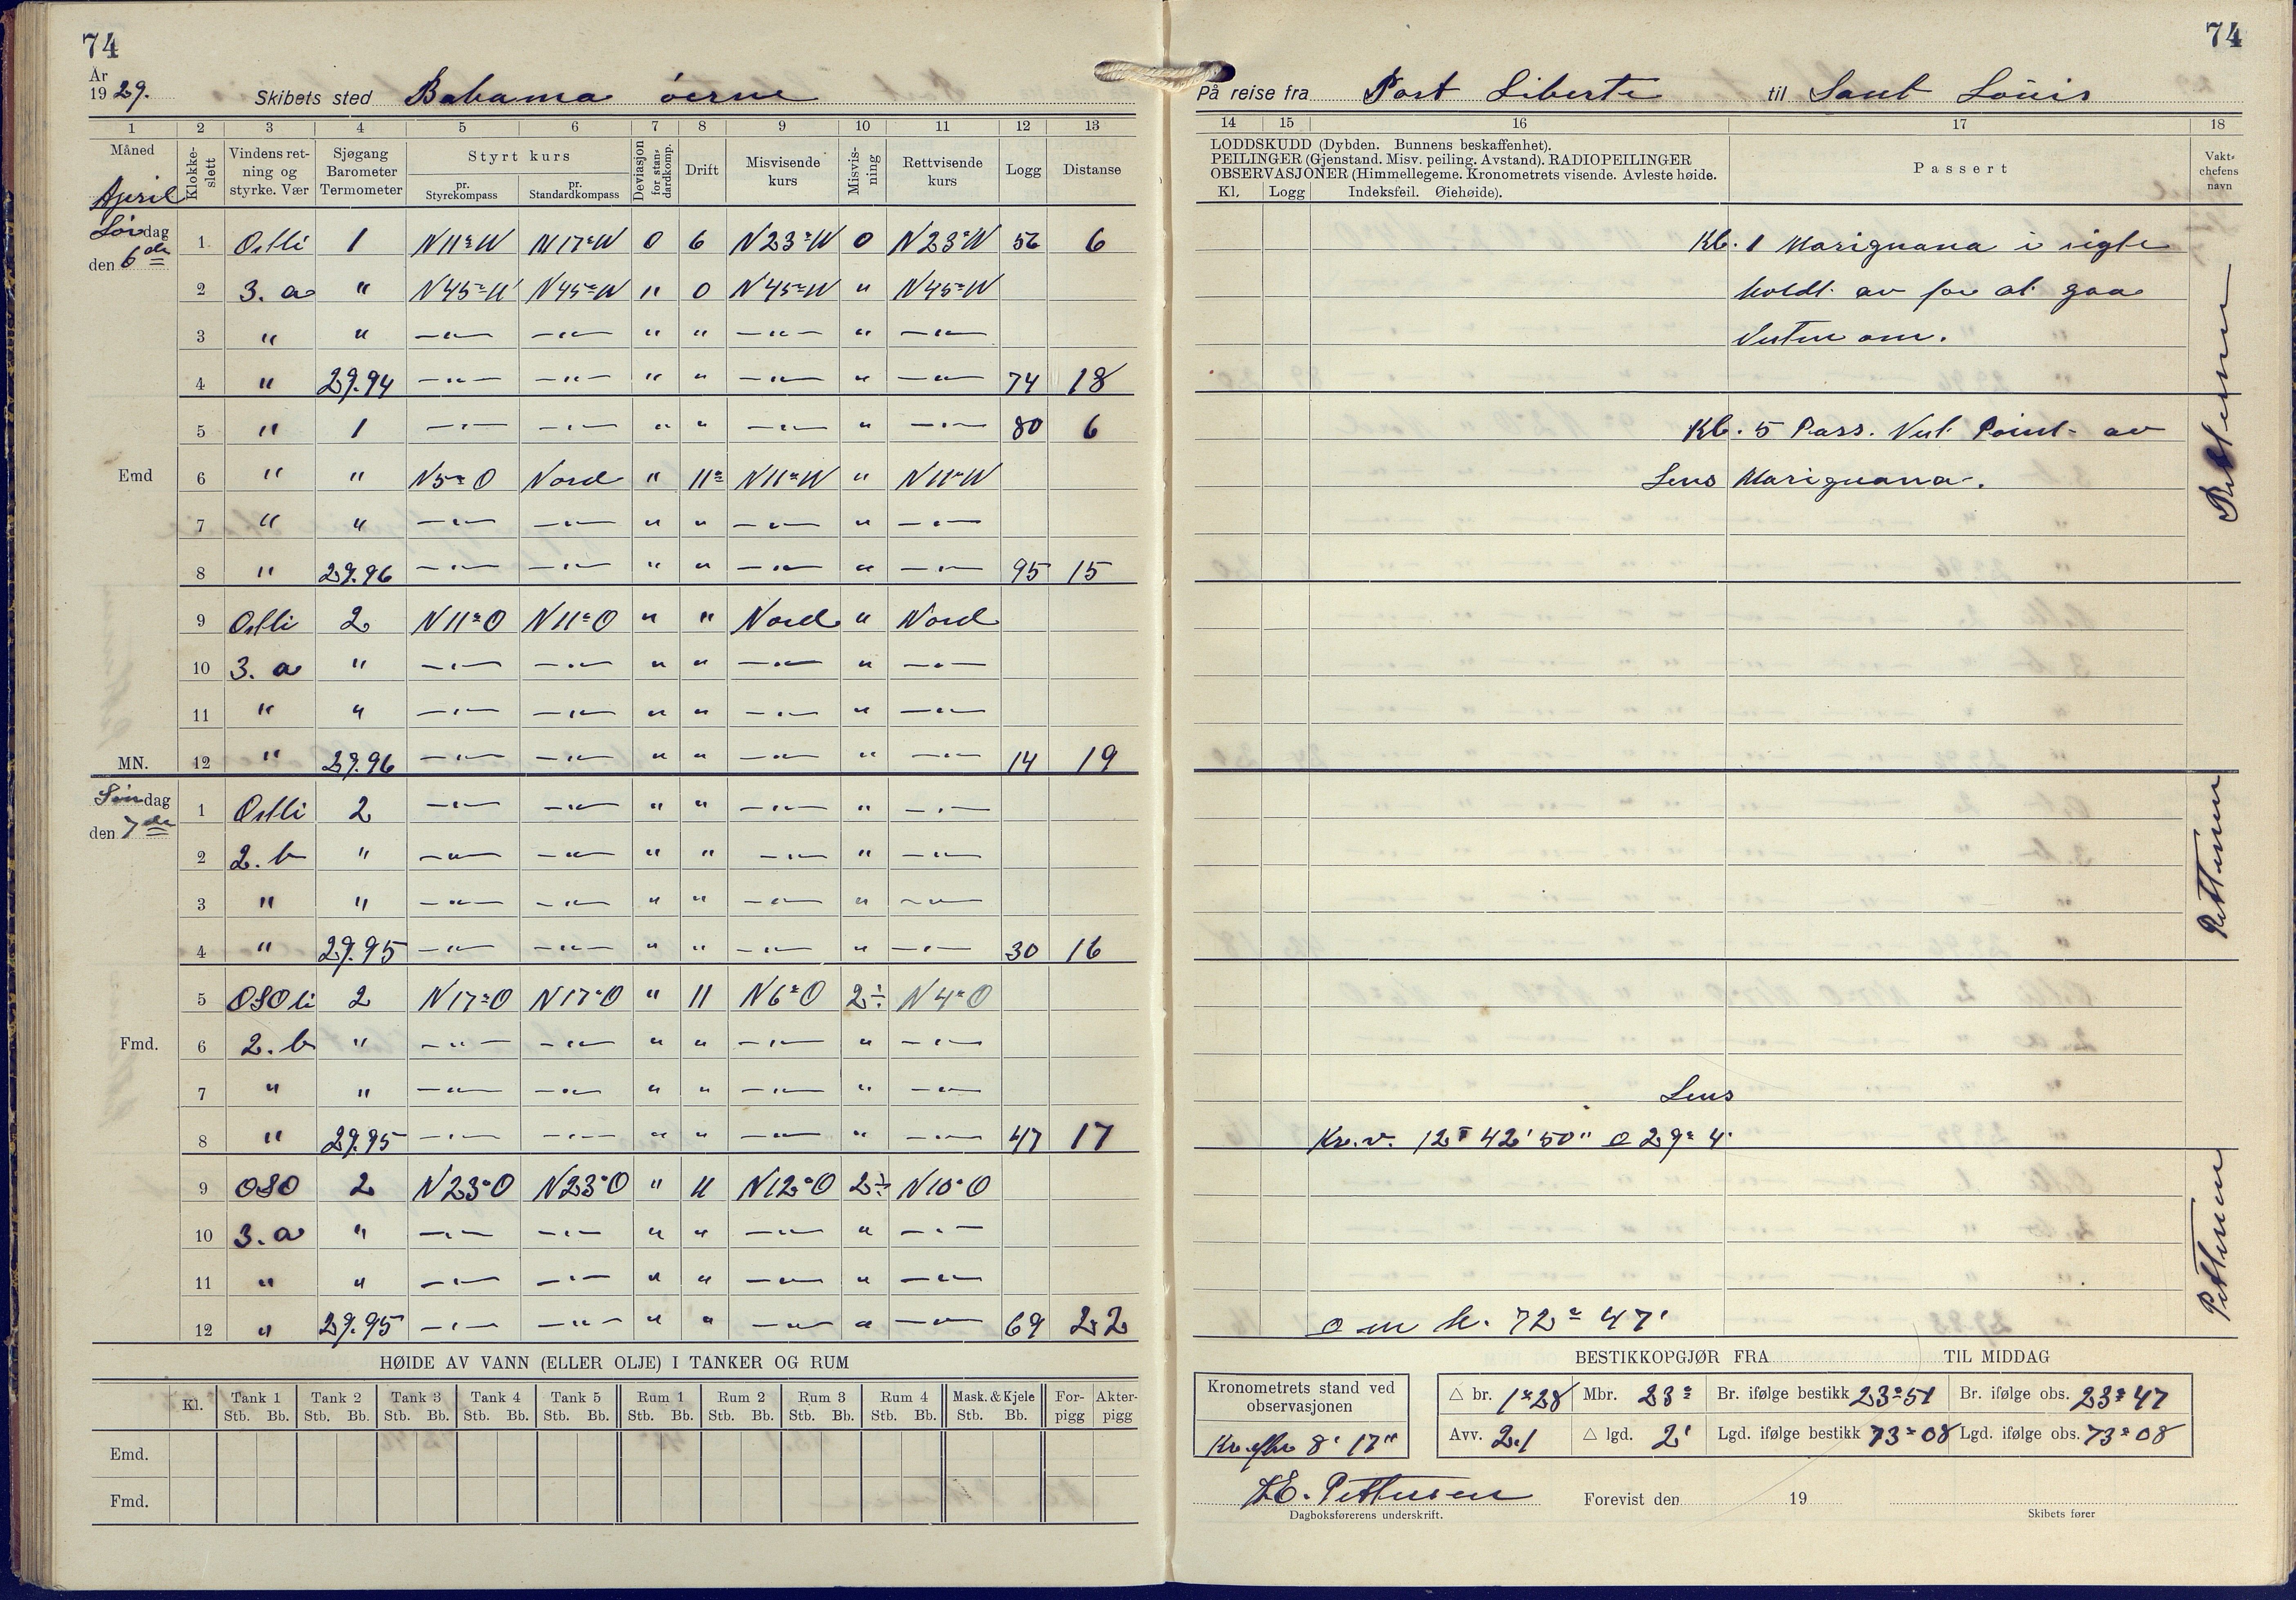 74
74
År
1929.
Skibets sted Bahama öerne
På reise fra Port Liberte til Sant Louis
1 2 3 4 5 6 7 8 9 10 11 12 13
14 15 16 17 18
Måned
April
Klokkeslett
Vindens retning og styrke. Vær
Sjøgang Barometer Termometer
Styrt kurs
pr. Styrekompass
pr. Standardkompass
Deviasjon for standardkomp.
Drift
Misvisende kurs
Misvisning
Rettvisende kurs
Logg
Distanse
LODDSKUDD (Dybden. Bunnens beskaffenhet).
PEILINGER (Gjenstand. Misv. peiling. Avstand). RADIOPEILINGER
OBSERVASJONER (Himmellegeme. Kronometrets visende. Avleste høide.
Kl. Logg Indeksfeil. Øiehøide).
Passert
Vaktchefens navn
Lørdag
den 6de
1 Ostli 1 N11°W N17°W 0 6 N23°W 0 N23°W 56 6
Kl. 1 Mariguana i sigte
2 3. a " N45°W N45°W " 0 N45°W " N45°W
holdt av for at gaa
3 " " —"— —"— " " —"— " —"—
Vesten om.
4 " 29.94 —"— —"— " " —"— " —"— 74 18
5 " 1 —"— —"— " " —"— " —"— 80 6
Kl. 5 Pass. Vest Point av
Emd
6 " " N5°O Nord " 11° N11°W " N11°W
Lens Mariguana.
7 " " —"— —"— " " —"— " —"—
8 " 29.96 —"— —"— " " —"— " —"— 95 15
9 Ostli 2 N11°O N11°O " " Nord " Nord
10 3. a " —"— —"— " " —"— " —"—
11 " " —"— —"— " " —"— " —"—
MN. 12 " 29.96 —"— —"— " " —"— " —"— 14 19
Søndag
den 7de
1 Ostli 2 —"— —"— " " —"— " —"—
2 2. b " —"— —"— " " —"— " —"—
3 " " —"— —"— " " —"— " —"—
4 " 29.95 —"— —"— " " —"— " —"— 30 16
5 OSOli 2 N17°O N17°O " 11 N6°O 2÷ N4°O
Fmd. 6 2. b " —"— —"— " " —"— " —"—
7 " " —"— —"— " " —"— " —"—
Lens
8 " 29.95 —"— —"— " " —"— " —"— 47 17
Kr.v. 12T 42' 50" o 29° 4'
9 OSO 2 N23°O N23°O " 11 N12°O 2÷ N10°O
10 3. a " —"— —"— " " —"— " —"—
11 " " —"— —"— " " —"— " —"—
12 " 29.95 —"— —"— " " —"— " —"— 69 22
o m h. 72° 47'
Pettersen
Pettersen
Pettersen
HØIDE AV VANN (ELLER OLJE) I TANKER OG RUM
Kl. Tank 1 Tank 2 Tank 3 Tank 4 Tank 5 Rum 1 Rum 2 Rum 3 Rum 4 Mask. & Kjele Forpigg Akterpigg
Stb. Bb. Stb. Bb. Stb. Bb. Stb. Bb. Stb. Bb. Stb. Bb. Stb. Bb. Stb. Bb. Stb. Bb. Stb. Bb.
Emd.
Fmd.
BESTIKKOPGJØR FRA TIL MIDDAG
Kronometrets stand ved observasjonen
Kr. efter 8' 17"
△ br. 1°28 Mbr. 23° Br. ifølge bestikk 23°51 Br. ifølge obs. 23°47
Avv. 2.1 △ lgd. 2' Lgd. ifølge bestikk 73°08 Lgd. ifølge obs. 73°08
Pettersen
Dagboksførerens underskrift.
Forevist den 19
Skibets fører